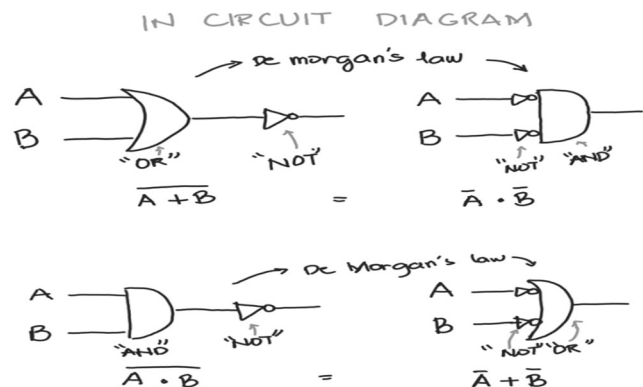 IN CIRCUIT DIAGRAM
De morgan's law
A
B
"OR"
"NOT"
A
B
"NOT"
"AND"
A + B = A̅ · B̅
De Morgan's law
A
B
"AND"
"NOT"
A
B
"NOT"
"OR"
A · B = A̅ + B̅